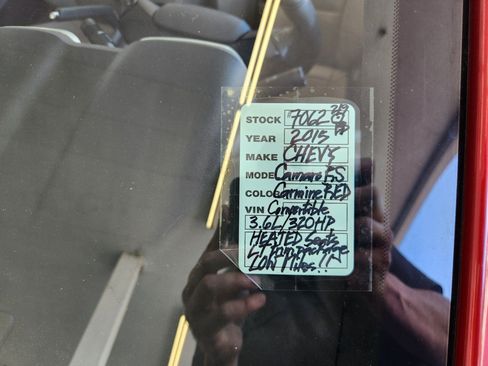 STOCK #7062
YEAR 2015
MAKE CHEVY
MODEL Camaro RS
COLOR Carmine RED
VIN Convertible
3.6L/320HP,
HEATED Seats
LOW Miles!!